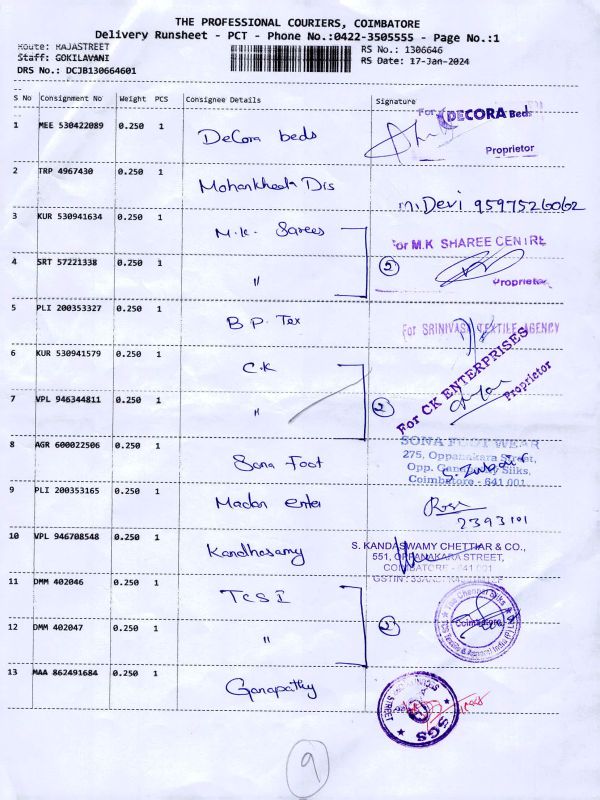 THE PROFESSIONAL COURIERS, COIMBATORE
Delivery Runsheet - PCT - Phone No.:0422-3505555 - Page No.:1
Route: RAJASTREET
Staff: GOKILAVANI
DRS No.: DCJB130664601
RS No.: 1306646
RS Date: 17-Jan-2024
S No Consignment No Weight PCS Consignee Details Signature
1 MEE 530422089 0.250 1 DeCora beds
For DECORA Beds
Proprietor
2 TRP 4967430 0.250 1 Mohankheda Dis
M. Devi 9597526062
3 KUR 530941634 0.250 1 M.K. Sarees
For M.K SHAREE CENTRE
4 SRT 57221338 0.250 1 "
Proprietor
5 PLI 200353327 0.250 1 B.P. Tex
For SRINIVASA TEXTILE AGENCY
6 KUR 530941579 0.250 1 C.K
For CK ENTERPRISES
7 VPL 946344811 0.250 1 "
2
Proprietor
8 AGR 600022506 0.250 1 Sona Foot
SONA FOOT WEAR
275, Oppanakara Street,
Opp. Ganapathy Silks,
Coimbatore - 641 001.
9 PLI 200353165 0.250 1 Madan enter
2393101
10 VPL 946708548 0.250 1 Kandhasamy
S. KANDASWAMY CHETTIAR & CO.,
551, OPPANAKARA STREET,
COIMBATORE - 641 001
11 DMM 402046 0.250 1 TCS I
The Chennai Silks
Coimbatore
12 DMM 402047 0.250 1 "
2
13 MAA 862491684 0.250 1 Ganapathy
STREET
SGS
9